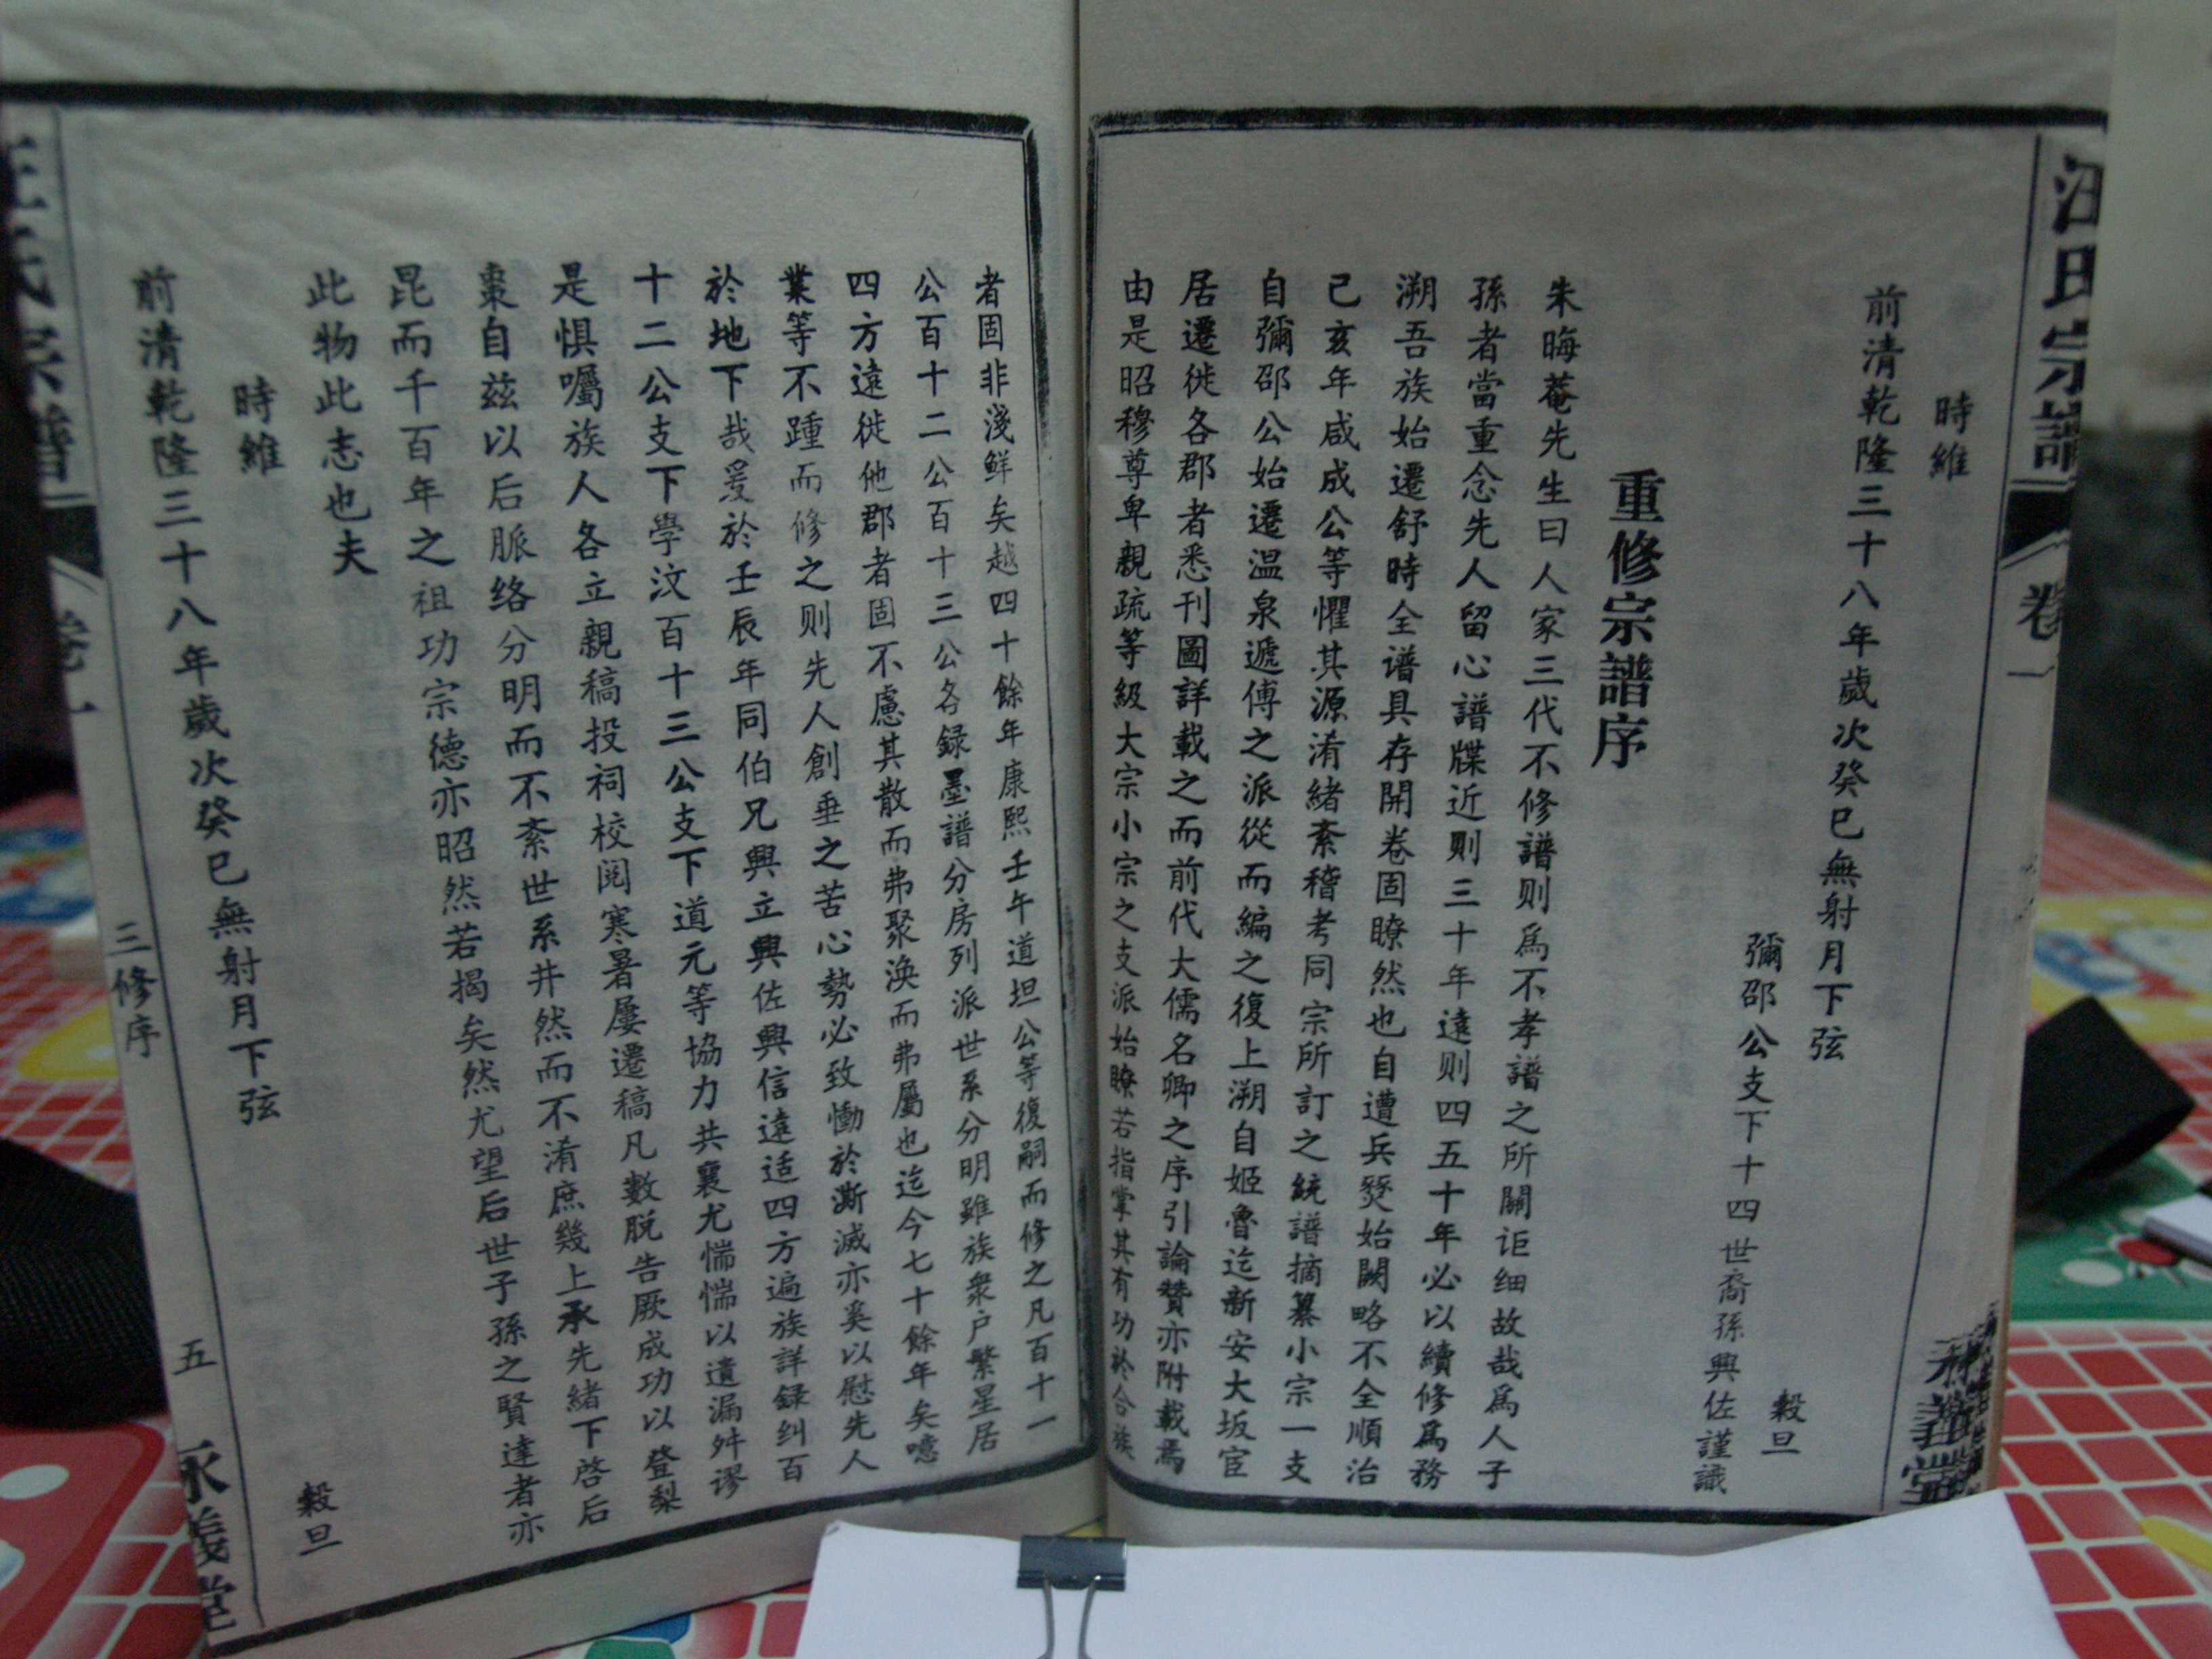 汪氏宗譜
卷一
承義堂
時維
前清乾隆三十八年歲次癸巳無射月下弦
穀旦
彌邵公支下十四世裔孫興佐謹識
重修宗譜序
朱晦菴先生曰人家三代不修譜则為不孝譜之所關讵细故哉為人子
孫者當重念先人留心譜牒近则三十年遠则四五十年必以續修為務
溯吾族始遷舒時全谱具存開卷固瞭然也自遭兵燹始闕略不全順治
己亥年咸成公等懼其源淆緒紊稽考同宗所訂之統譜摘纂小宗一支
自彌邵公始遷温泉遞傅之派從而編之復上溯自姬魯迄新安大坂宦
居遷徙各郡者悉刊圖詳載之而前代大儒名卿之序引論贊亦附載焉
由是昭穆尊卑親疏等級大宗小宗之支派始瞭若指掌其有功於合族
者固非淺鲜矣越四十餘年康熙壬午道坦公等復嗣而修之凡百十一
公百十二公百十三公各録墨譜分房列派世系分明雖族衆户繁星居
四方遠徙他郡者固不慮其散而弗聚渙而弗屬也迄今七十餘年矣噫
業等不踵而修之则先人創垂之苦心勢必致慟於澌滅亦奚以慰先人
於地下哉爰於壬辰年同伯兄興立興佐興信遠适四方遍族詳録纠百
十二公支下學汶百十三公支下道元等協力共襄尤惴惴以遺漏舛谬
是惧囑族人各立親稿投祠校阅寒暑屢遷稿凡數脱告厥成功以登梨
棗自兹以后脈络分明而不紊世系井然而不淆庶幾上承先緒下啓后
昆而千百年之祖功宗德亦昭然若揭矣然尤望后世子孫之賢達者亦
此物此志也夫
時維
前清乾隆三十八年歲次癸巳無射月下弦
穀旦
汪氏宗譜
卷一
三修序
五
承義堂